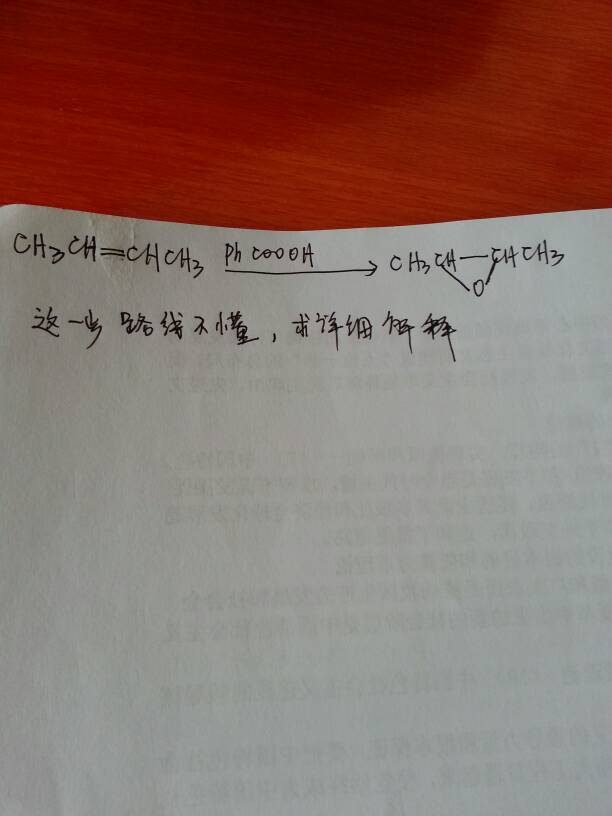 CH₃CH=CHCH₃ PhCOOOH → CH₃CH—CHCH₃
O
这一步路线不懂，求详细解释